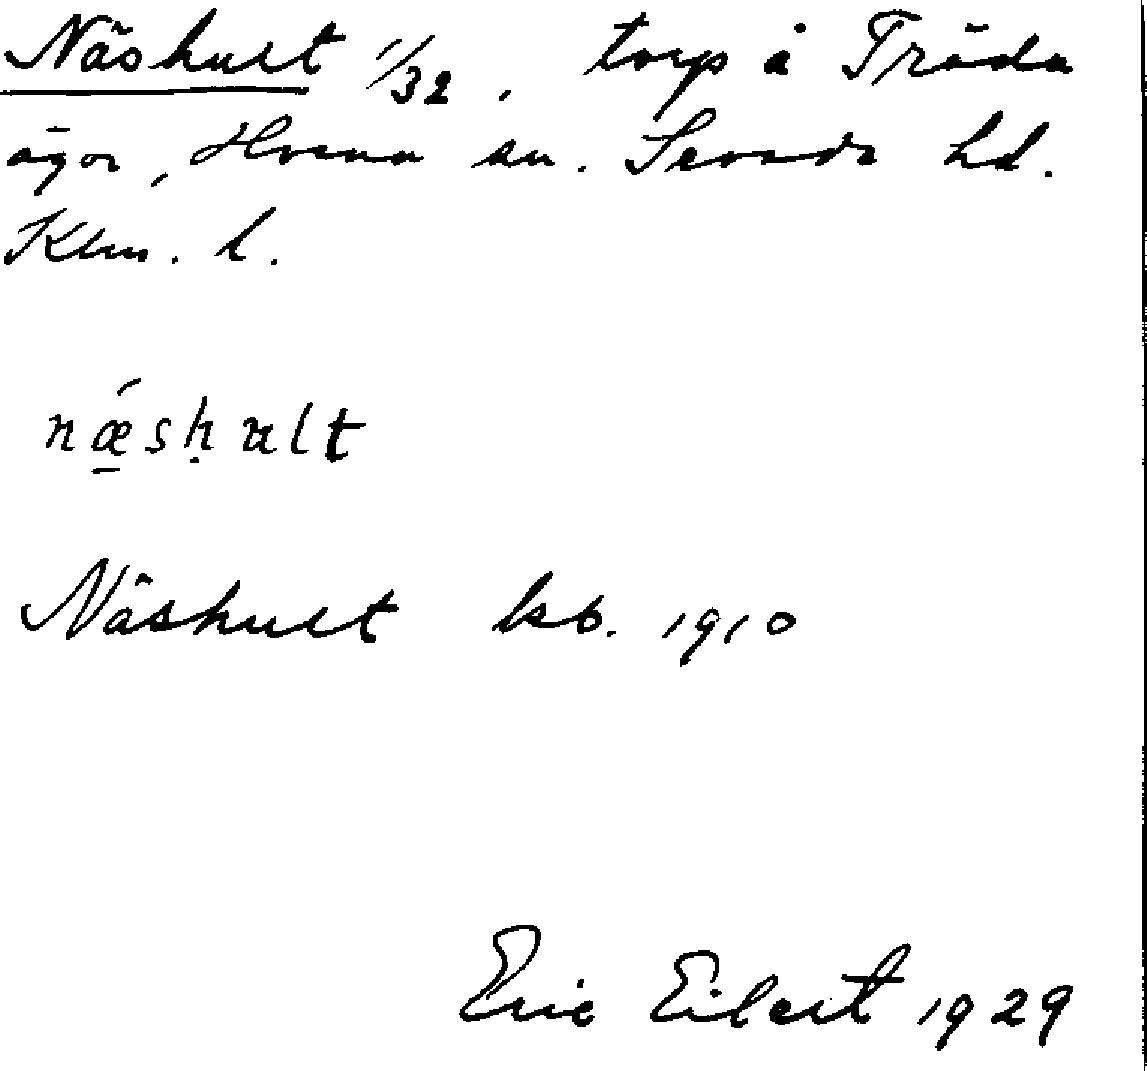 Näshult 1/32, torp å Fröåda
ägor, Hvena sn. Sevede hd.
Klm. l.
nǽ̱sḥult
Näshult ksb. 1910
Eric Eilert 1929